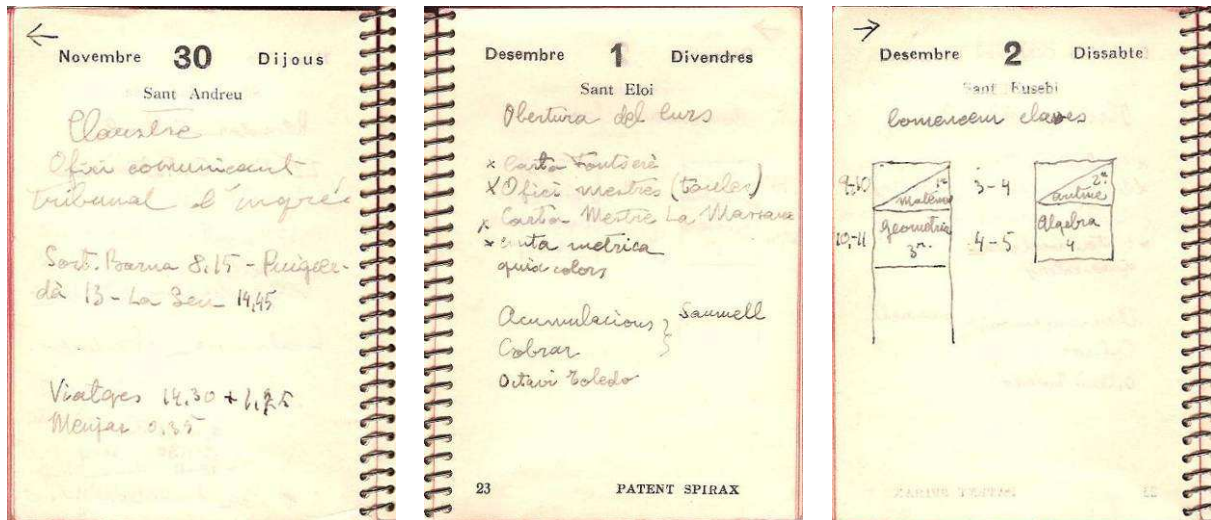 Novembre 30 Dijous
Sant Andreu
Claustre
Ofici comunicant
tribunal d'ingrés
Sort. Barna 8,15 - Puigcer-
dà 13 - La Seu 14,45
Viatges 14.30 + 1,25
Menjar 0.35
Desembre 1 Divendres
Sant Eloi
Obertura del curs
x Carta Fontserè
x Ofici mestres (taules)
x Carta Mestre La Massana
x cinta metrica
guix colors
Acumulacions } Saumell
Cobrar
Octavi Toledo
23 PATENT SPIRAX
Desembre 2 Dissabte
Sant Eusebi
Comencem classes
9-10 1r 3-4 2n
10-11 Geometria 4-5 Algebra
3r 4